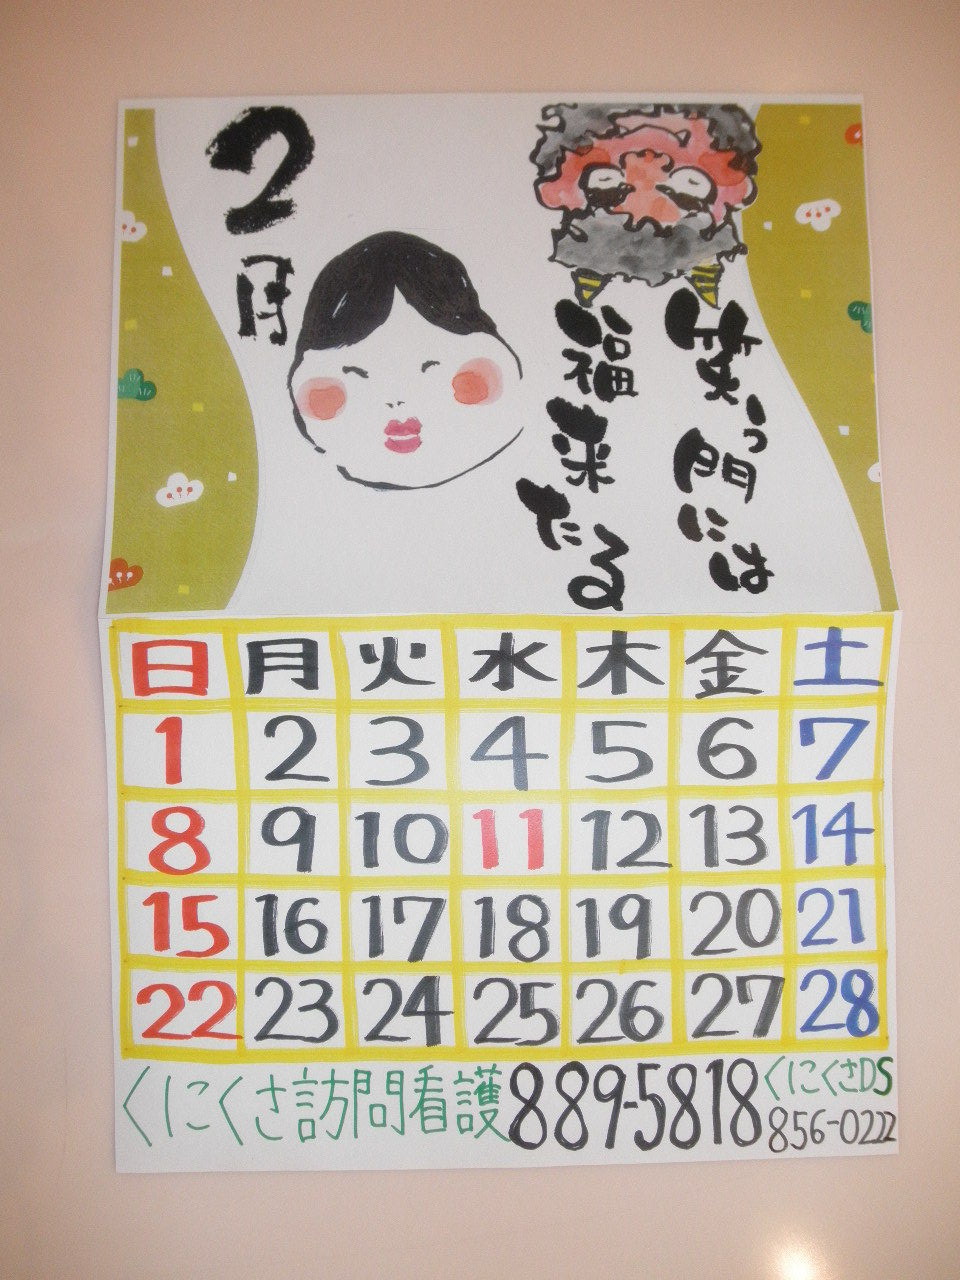 2月
笑う門には
福来たる
日 月 火 水 木 金 土
1 2 3 4 5 6 7
8 9 10 11 12 13 14
15 16 17 18 19 20 21
22 23 24 25 26 27 28
くにくさ訪問看護 889-5818
くにくさDS
856-0222